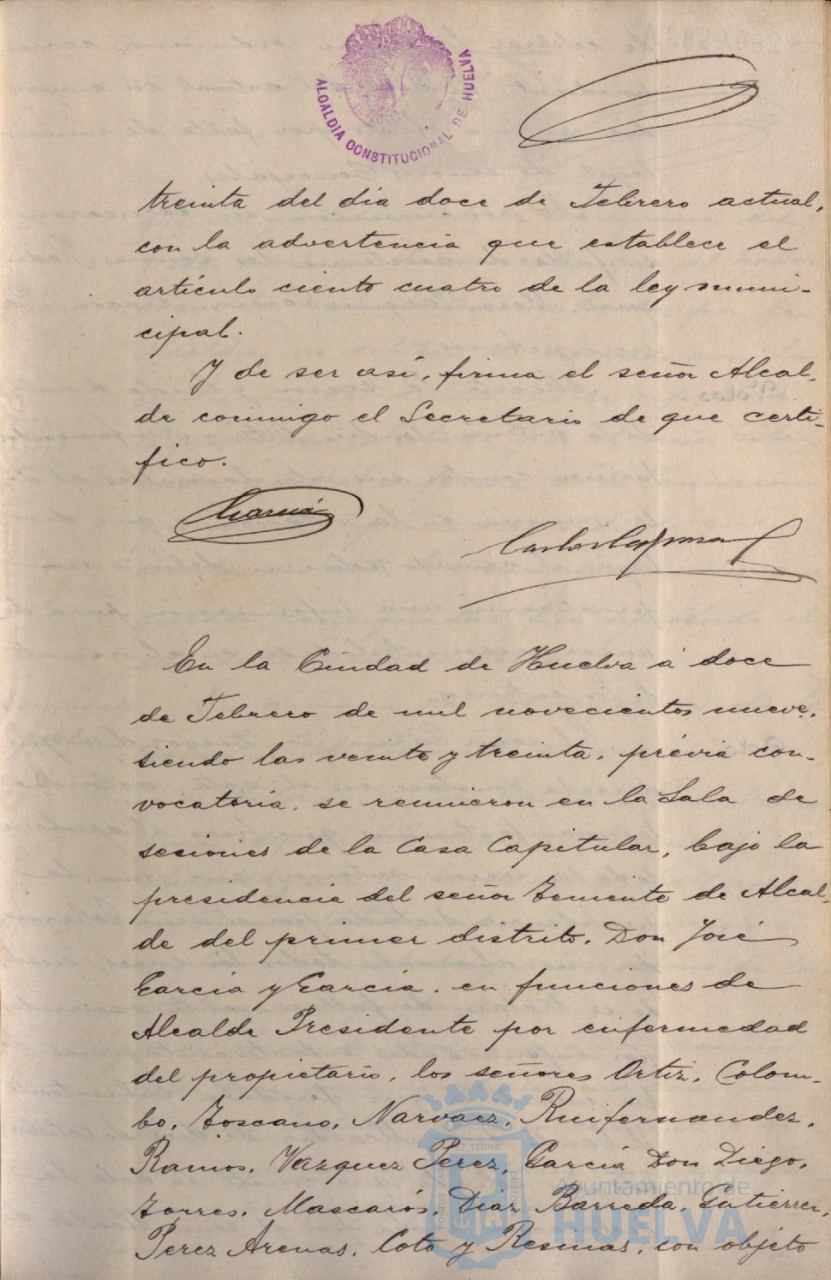 ALCALDIA CONSTITUCIONAL DE HUELVA
treinta del dia doce de Febrero actual,
con la advertencia que establece el
artículo ciento cuatro de la ley muni-
cipal.
Y de ser así, firma el señor Alcal-
de conmigo el Secretario de que certi-
fico.
García
En la Ciudad de Huelva á doce
de Febrero de mil novecientos nueve,
siendo las veinte y treinta, prévia con-
vocatoria, se reunieron en la Sala de
sesiones de la Casa Capitular, bajo la
presidencia del señor Teniente de Alcal-
de del primer distrito, Don José
García y García, en funciones de
Alcalde Presidente por enfermedad
del propietario, los señores Ortiz, Colom-
bo, Toscano, Narvaez, Ruifernandez,
Ramos, Vazquez Perez, García Don Diego,
Torres, Mascarós, Diaz Barreda, Gutierrez,
Perez Arenas, Coto y Resmas, con objeto
Ayuntamiento de
HUELVA